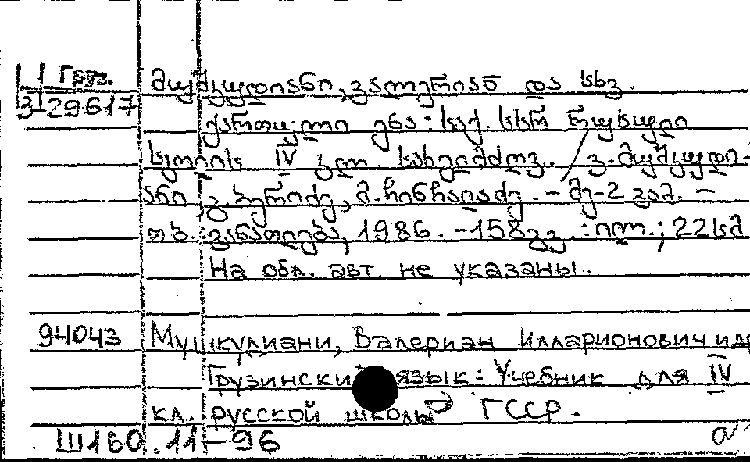 1 Груз.
მუშკუდიანი, ვალერიან და სხვ.
3-29617
ქართული ენა: საქ. სსრ რუსული
სკოლის IV კლ. სახელმძღვ. / ვ. მუშკუდი-
ანი, ვ. ბერიძე, მ. ჩინჩალაძე. - მე-2 გამ. -
თბ.: განათლება, 1986. - 158 გვ. : ილ.; 22სმ
На обл. авт. не указаны.
94043 Мушкулиани, Валериан Илларионович и др
Грузинский язык: Учебник для IV
кл. русской школы ГССР.
Ш160.11-96